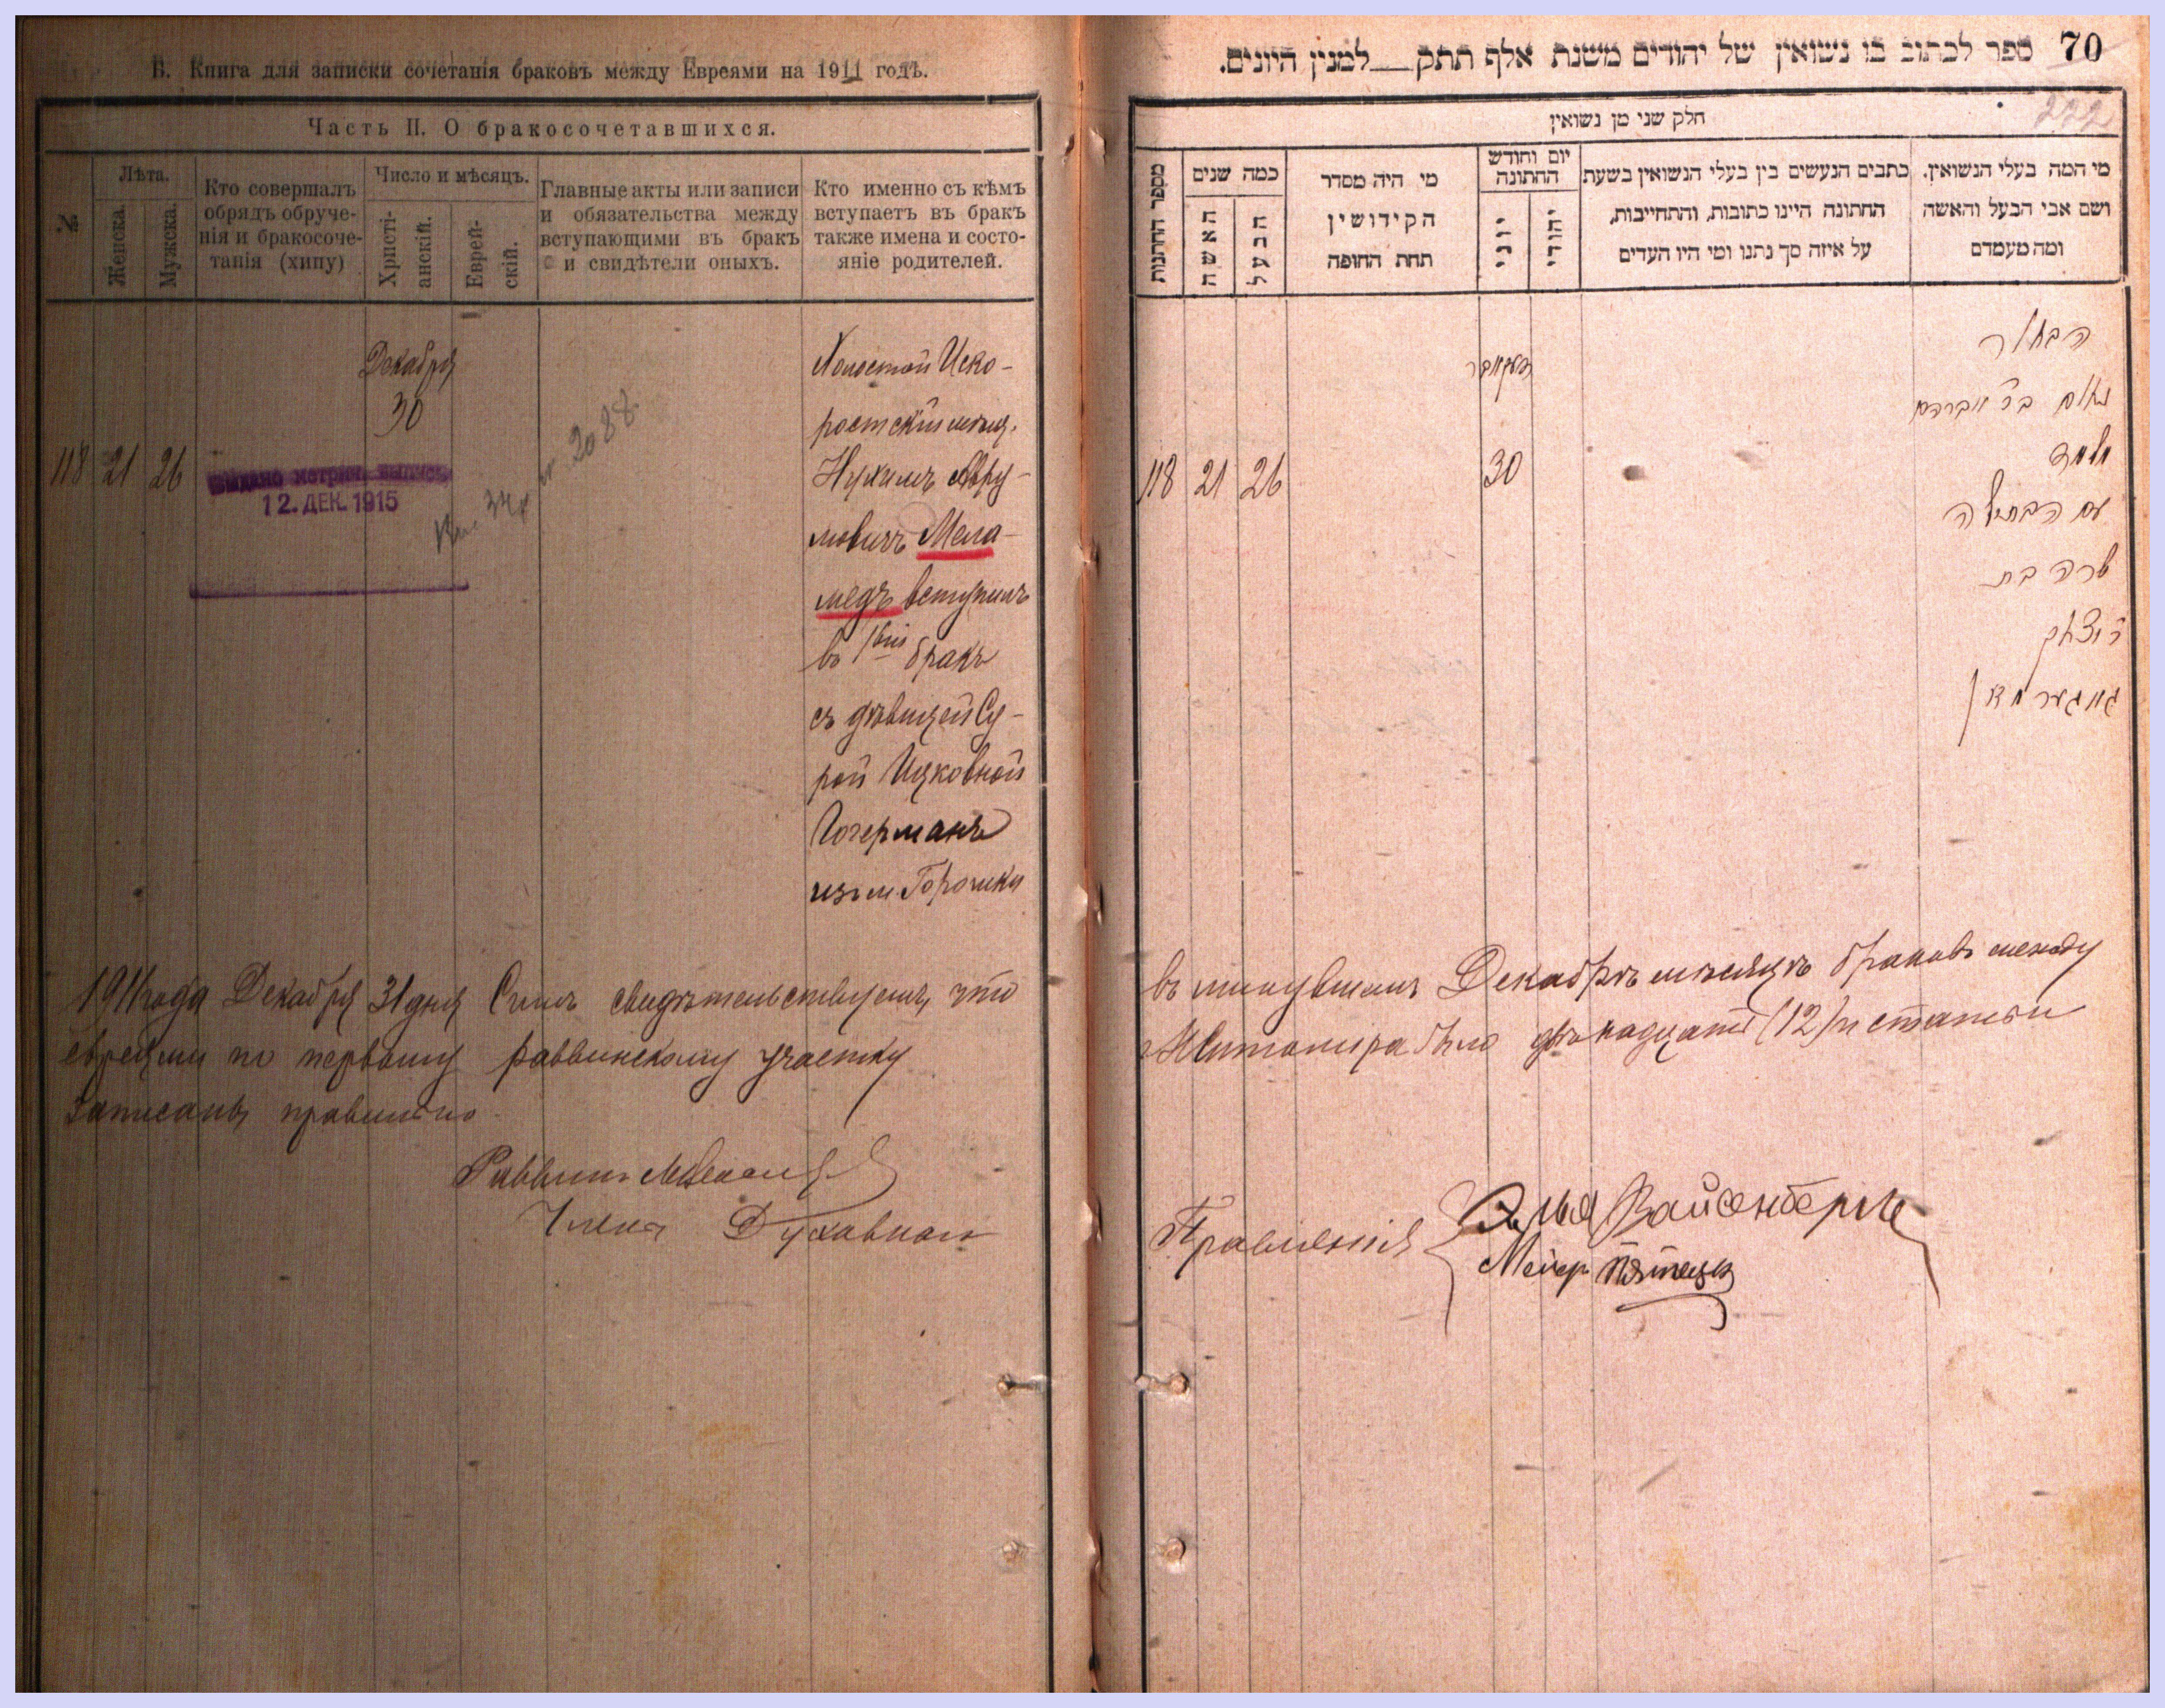 В. Книга для записки сочетанія браковъ между Евреями на 1911 годъ.
Часть II. О бракосочетавшихся.
№
Лѣта.
Женска.
Мужска.
Кто совершалъ
обрядъ обруче-
нія и бракосоче-
танія (хипу)
Число и мѣсяцъ.
Христі-
анскій.
Еврей-
скій.
Главные акты или записи
и обязательства между
вступающими въ бракъ
и свидѣтели оныхъ.
Кто именно съ кѣмъ
вступаетъ въ бракъ
также имена и состо-
яніе родителей.
118
21
26
Декабря
30
выдано метрич. выпись
12. ДЕК. 1915
2088
Холостой Иско-
ростскій мѣщ.
Нухимъ Авру-
мовичъ Мела-
медъ вступилъ
въ 1вый бракъ
съ дѣвицей Су-
рой Ицковной
Гогерманъ
изъ м. Горошки
1911 года Декабря 31 дня Симъ свидѣтельствуемъ, что
евреями по первому раввинскому участку
записаны правильно
Раввинъ
Члены Духовнаго
70 ספר לכתוב בו נשואין של יהודים משנת אלף תתק למנין היונים.
222
חלק שני מן נשואין
מספר החתונות
כמה שנים
האשה
הבעל
מי היה מסדר
הקידושין
תחת החופה
יום וחודש
החתונה
יוני
יהודי
כתבים הנעשים בין בעלי הנשואין בשעת
החתונה היינו כתובות, והתחייבות,
על איזה סך נתנו ומי היו העדים
מי המה בעלי הנשואין.
ושם אבי הבעל והאשה
ומה מעמדם
118
21
26
דעקאבר
30
הבחור
נחום בר אברהם
מלמד
עם הבתולה
שרה בת
ר יצחק
גאגערמאן
въ минувшемъ Декабрѣ мѣсяцѣ браковъ между
г. Житомира было двѣнадцать (12) и статьи
Правленія
Элья Вайсенбергъ
Меіер